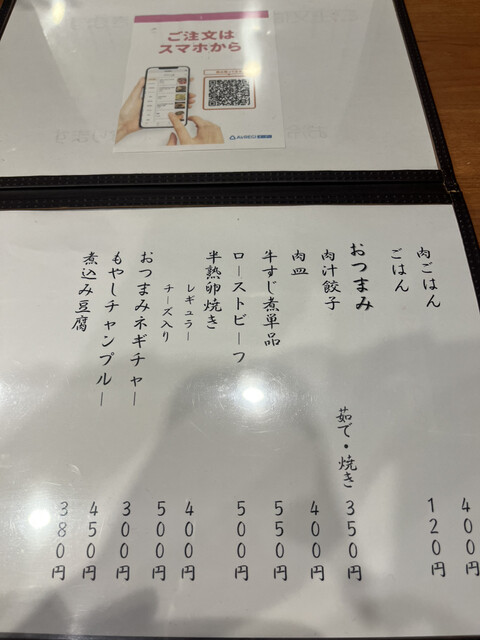 ご注文は
スマホから
AirREGI
肉ごはん 400円
ごはん 120円
おつまみ
肉汁餃子 茹で・焼き 350円
肉皿 400円
牛すじ煮単品 550円
ローストビーフ 500円
半熟卵焼き
レギュラー 400円
チーズ入り 500円
おつまみネギチャー 300円
もやしチャンプルー 450円
煮込み豆腐 380円